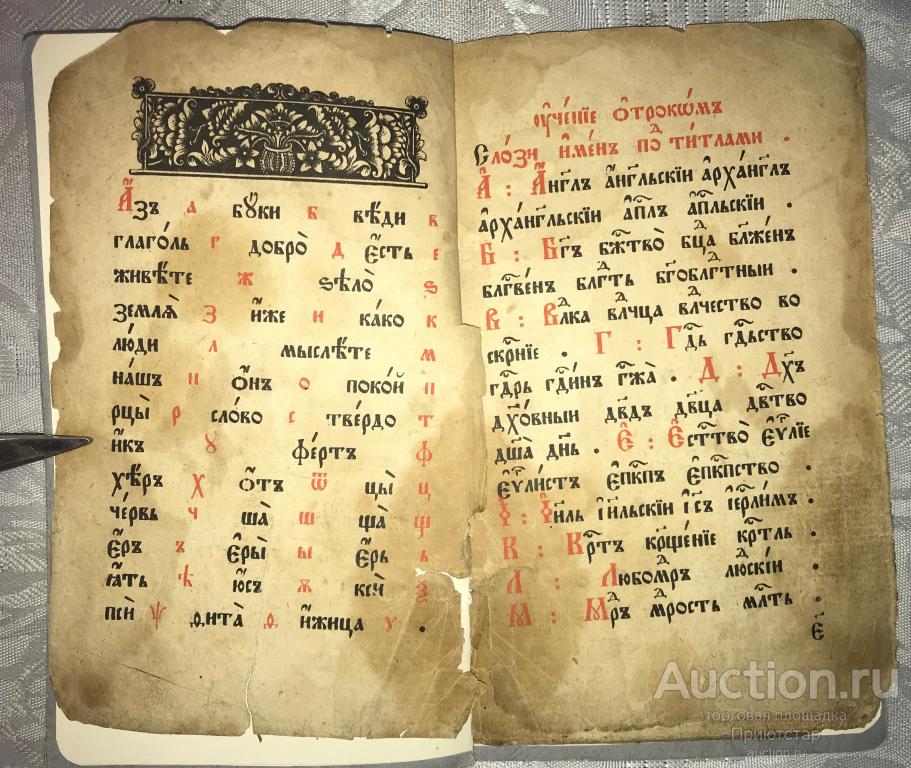 А҆́зъ а бꙋ́ки б вѣ́ди в
глаго́ль г добро̀ д є҆́сть е
живѣ́те ж ѕѣлѡ̀ ѕ
землѧ̀ з и҆́же и ка́ко к
лю́ди л мыслѣ́те м
на́шъ н ѻ҆́нъ о поко́й п
рцы̀ р сло́во с тве́рдо т
и҆́къ ꙋ фе́ртъ ф
хѣ́ръ х ѿ цы̀ ц
че́рвь ч ша̀ ш ща̀ щ
є҆́ръ ъ є҆ры̀ ы є҆́рь ь
ꙗ҆́ть ѣ ю҆́съ ѫ ксѝ ѯ
псѝ ѱ ѳита̀ ѳ и҆́жица ѵ .
ᲂу҆че́нїе ѻ҆трокѡ́мъ
Сло́зи и҆ме́нъ под̾ ти́тлами .
А҆ : А҆́нг҃лъ а҆́нг҃льскїи а҆рха́нг҃лъ
а҆рха́нг҃льскїи а҆п҃лъ а҆п҃льскїи .
Б : Бг҃ъ бж҃тво̀ бц҃а бл҃же́нъ
блг҃ве́нъ блгⷣть бг҃облгⷣтныи .
В : Влⷣка влⷣчца влⷣчество во
скр҃нїе . Г : Гдⷭ҇ь гдⷭ҇ьство
гд҃рь гд҃и́нъ гж҃а̀ . Д : Дх҃ъ
дх҃о́вныи дв҃дъ дв҃ца дв҃тво
дш҃а̀ дн҃ь . Є҆ : Є҆стⷭ҇тво̀ є҆ѵⷢ҇лїе
є҆ѵⷢ҇ли́стъ є҆пⷭ҇кпъ є҆пⷭ҇кпство
І҆ : І҆и҃ль і҆и҃льскїи і҆и҃съ і҆ерⷭ҇ли́мъ .
К : Крⷭ҇тъ кр҃ще́нїе крⷭ҇тль
Л : Любомⷣръ людⷭ҇кїи .
М : Мⷣръ мⷣрость млⷭ҇ть .
є҆
Auction.ru
торговая площадка
Приютстар
auction.ru